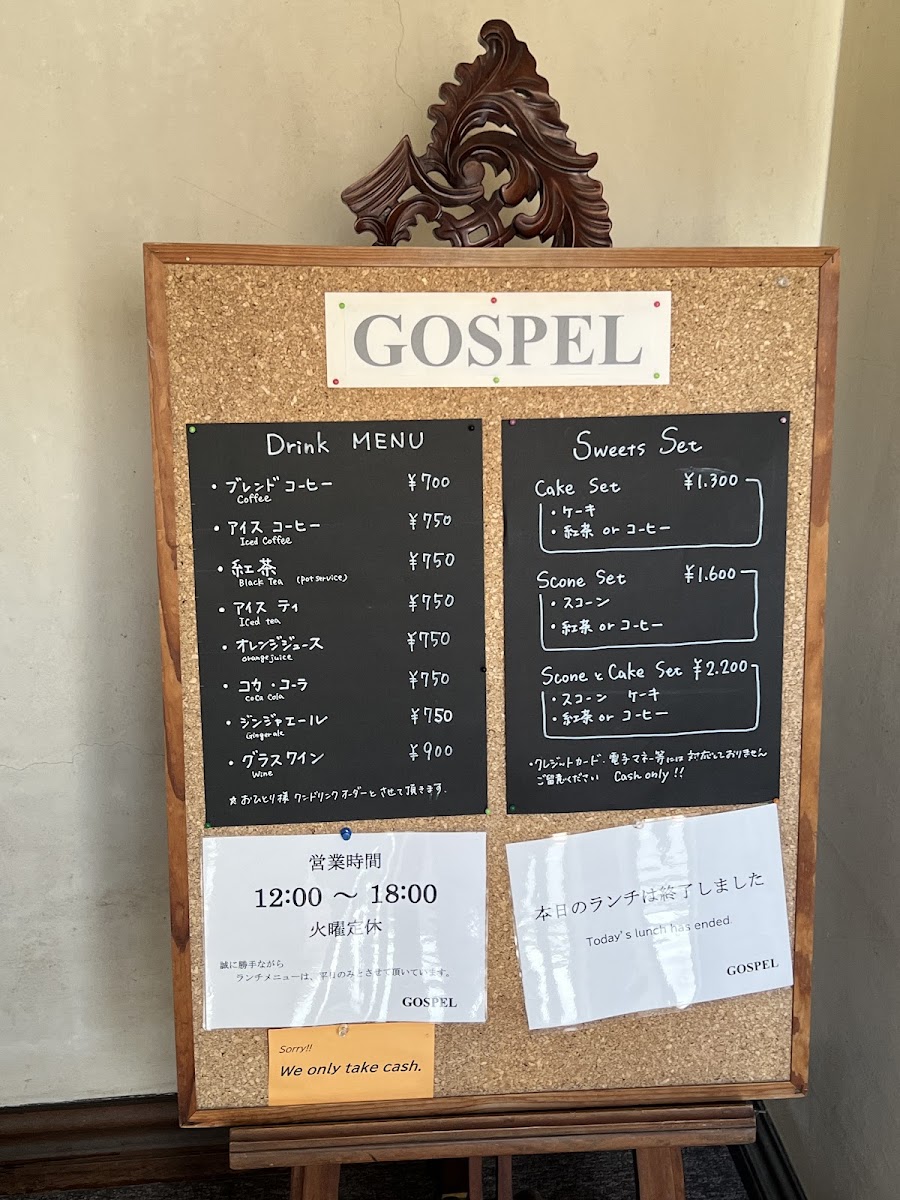 GOSPEL
Drink MENU
・ブレンド コーヒー ¥700
Coffee
・アイス コーヒー ¥750
Iced Coffee
・紅茶 ¥750
Black Tea (pot service)
・アイス ティ ¥750
Iced tea
・オレンジジュース ¥750
orange juice
・コカ・コーラ ¥750
Coca Cola
・ジンジャエール ¥750
Ginger ale
・グラスワイン ¥900
Wine
☆おひとり様 ワンドリンクオーダーとさせて頂きます.
Sweets Set
Cake Set ¥1.300
・ケーキ
・紅茶 or コーヒー
Scone Set ¥1.600
・スコーン
・紅茶 or コーヒー
Scone と Cake Set ¥2.200
・スコーン ケーキ
・紅茶 or コーヒー
・クレジットカード・電子マネー等には対応しておりません
ご留意ください Cash only!!
営業時間
12:00 ～ 18:00
火曜定休
誠に勝手ながら
ランチメニューは、平日のみとさせて頂いています。
GOSPEL
本日のランチは終了しました
Today's lunch has ended
GOSPEL
Sorry!!
We only take cash.